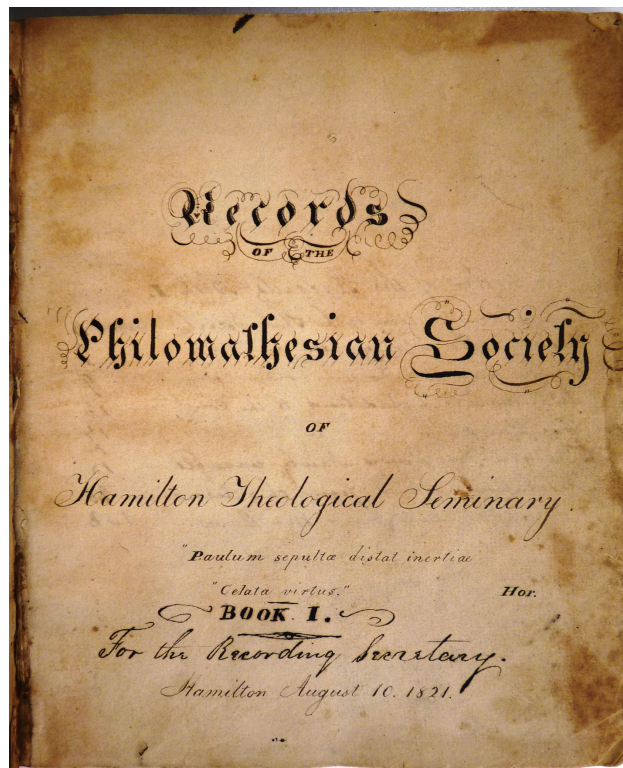 Records
OF THE
Philomathesian Society
OF
Hamilton Theological Seminary.
"Paulum sepultæ distat inertiae
"Celata virtus." Hor.
BOOK I.
For the Recording Secretary.
Hamilton August 10. 1821.